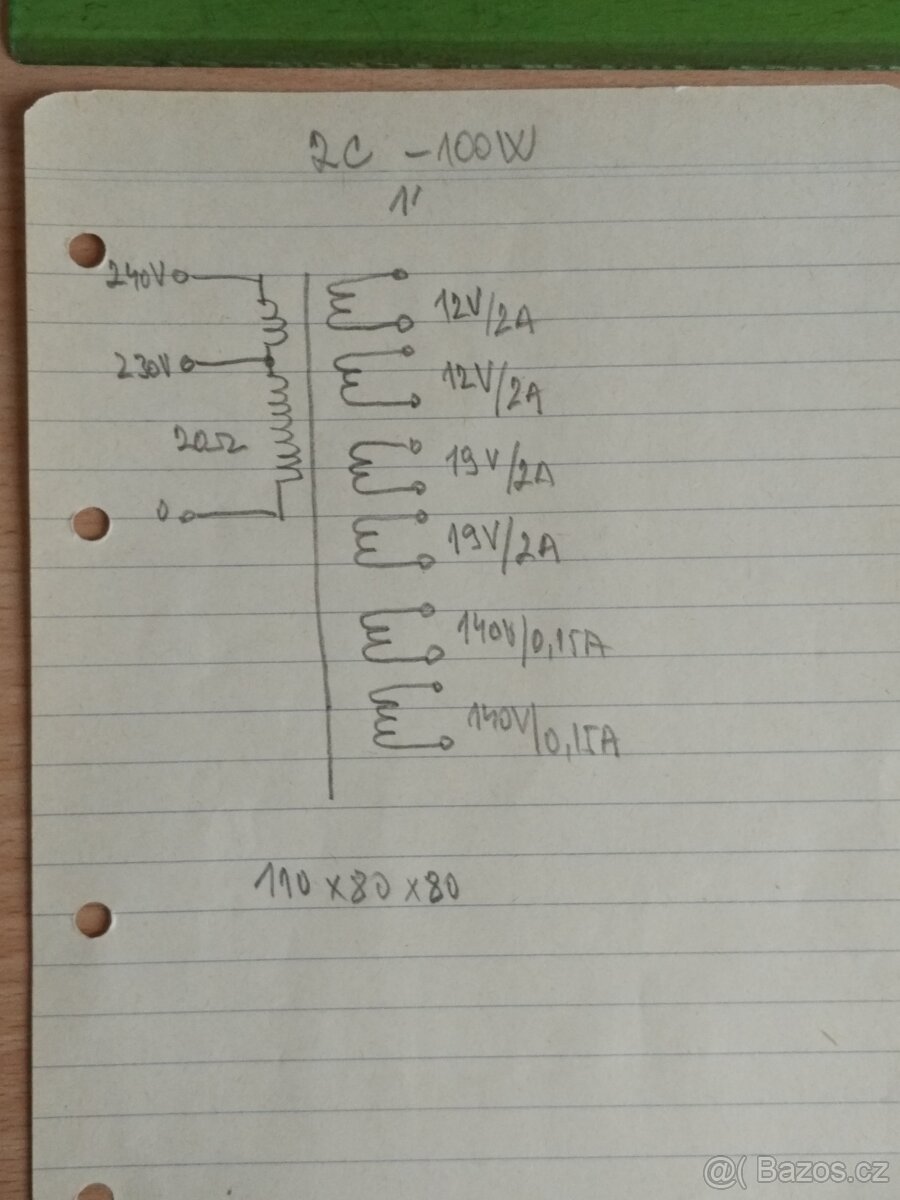 2C -100W
1'
240V
12V/2A
230V
12V/2A
20Ω
19V/2A
0
19V/2A
140V/0,15A
140V/0,15A
110 x 80 x 80
@( Bazos.cz